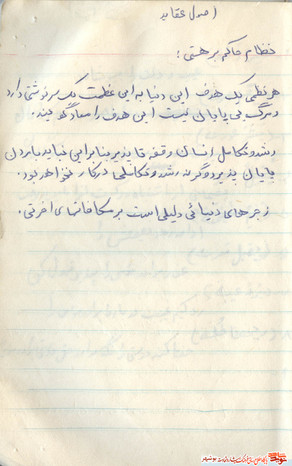 اصول عقاید
نظام حاکم بر هستی:
هر نظمی یک هدف این دنیا به این عظمت یک سرنوشتی دارد
و مرگ بی پایان نیست این هدف را صادق میند.
رشد و تکامل انسان وقفه ناپذیر بنابراین نباید با مردن
پایان پذیرد وگرنه رشد و تکاملی در کار نخواهد بود.
زجرهای دنیائی دلیلی است بر مکافاتهای اخرتی.